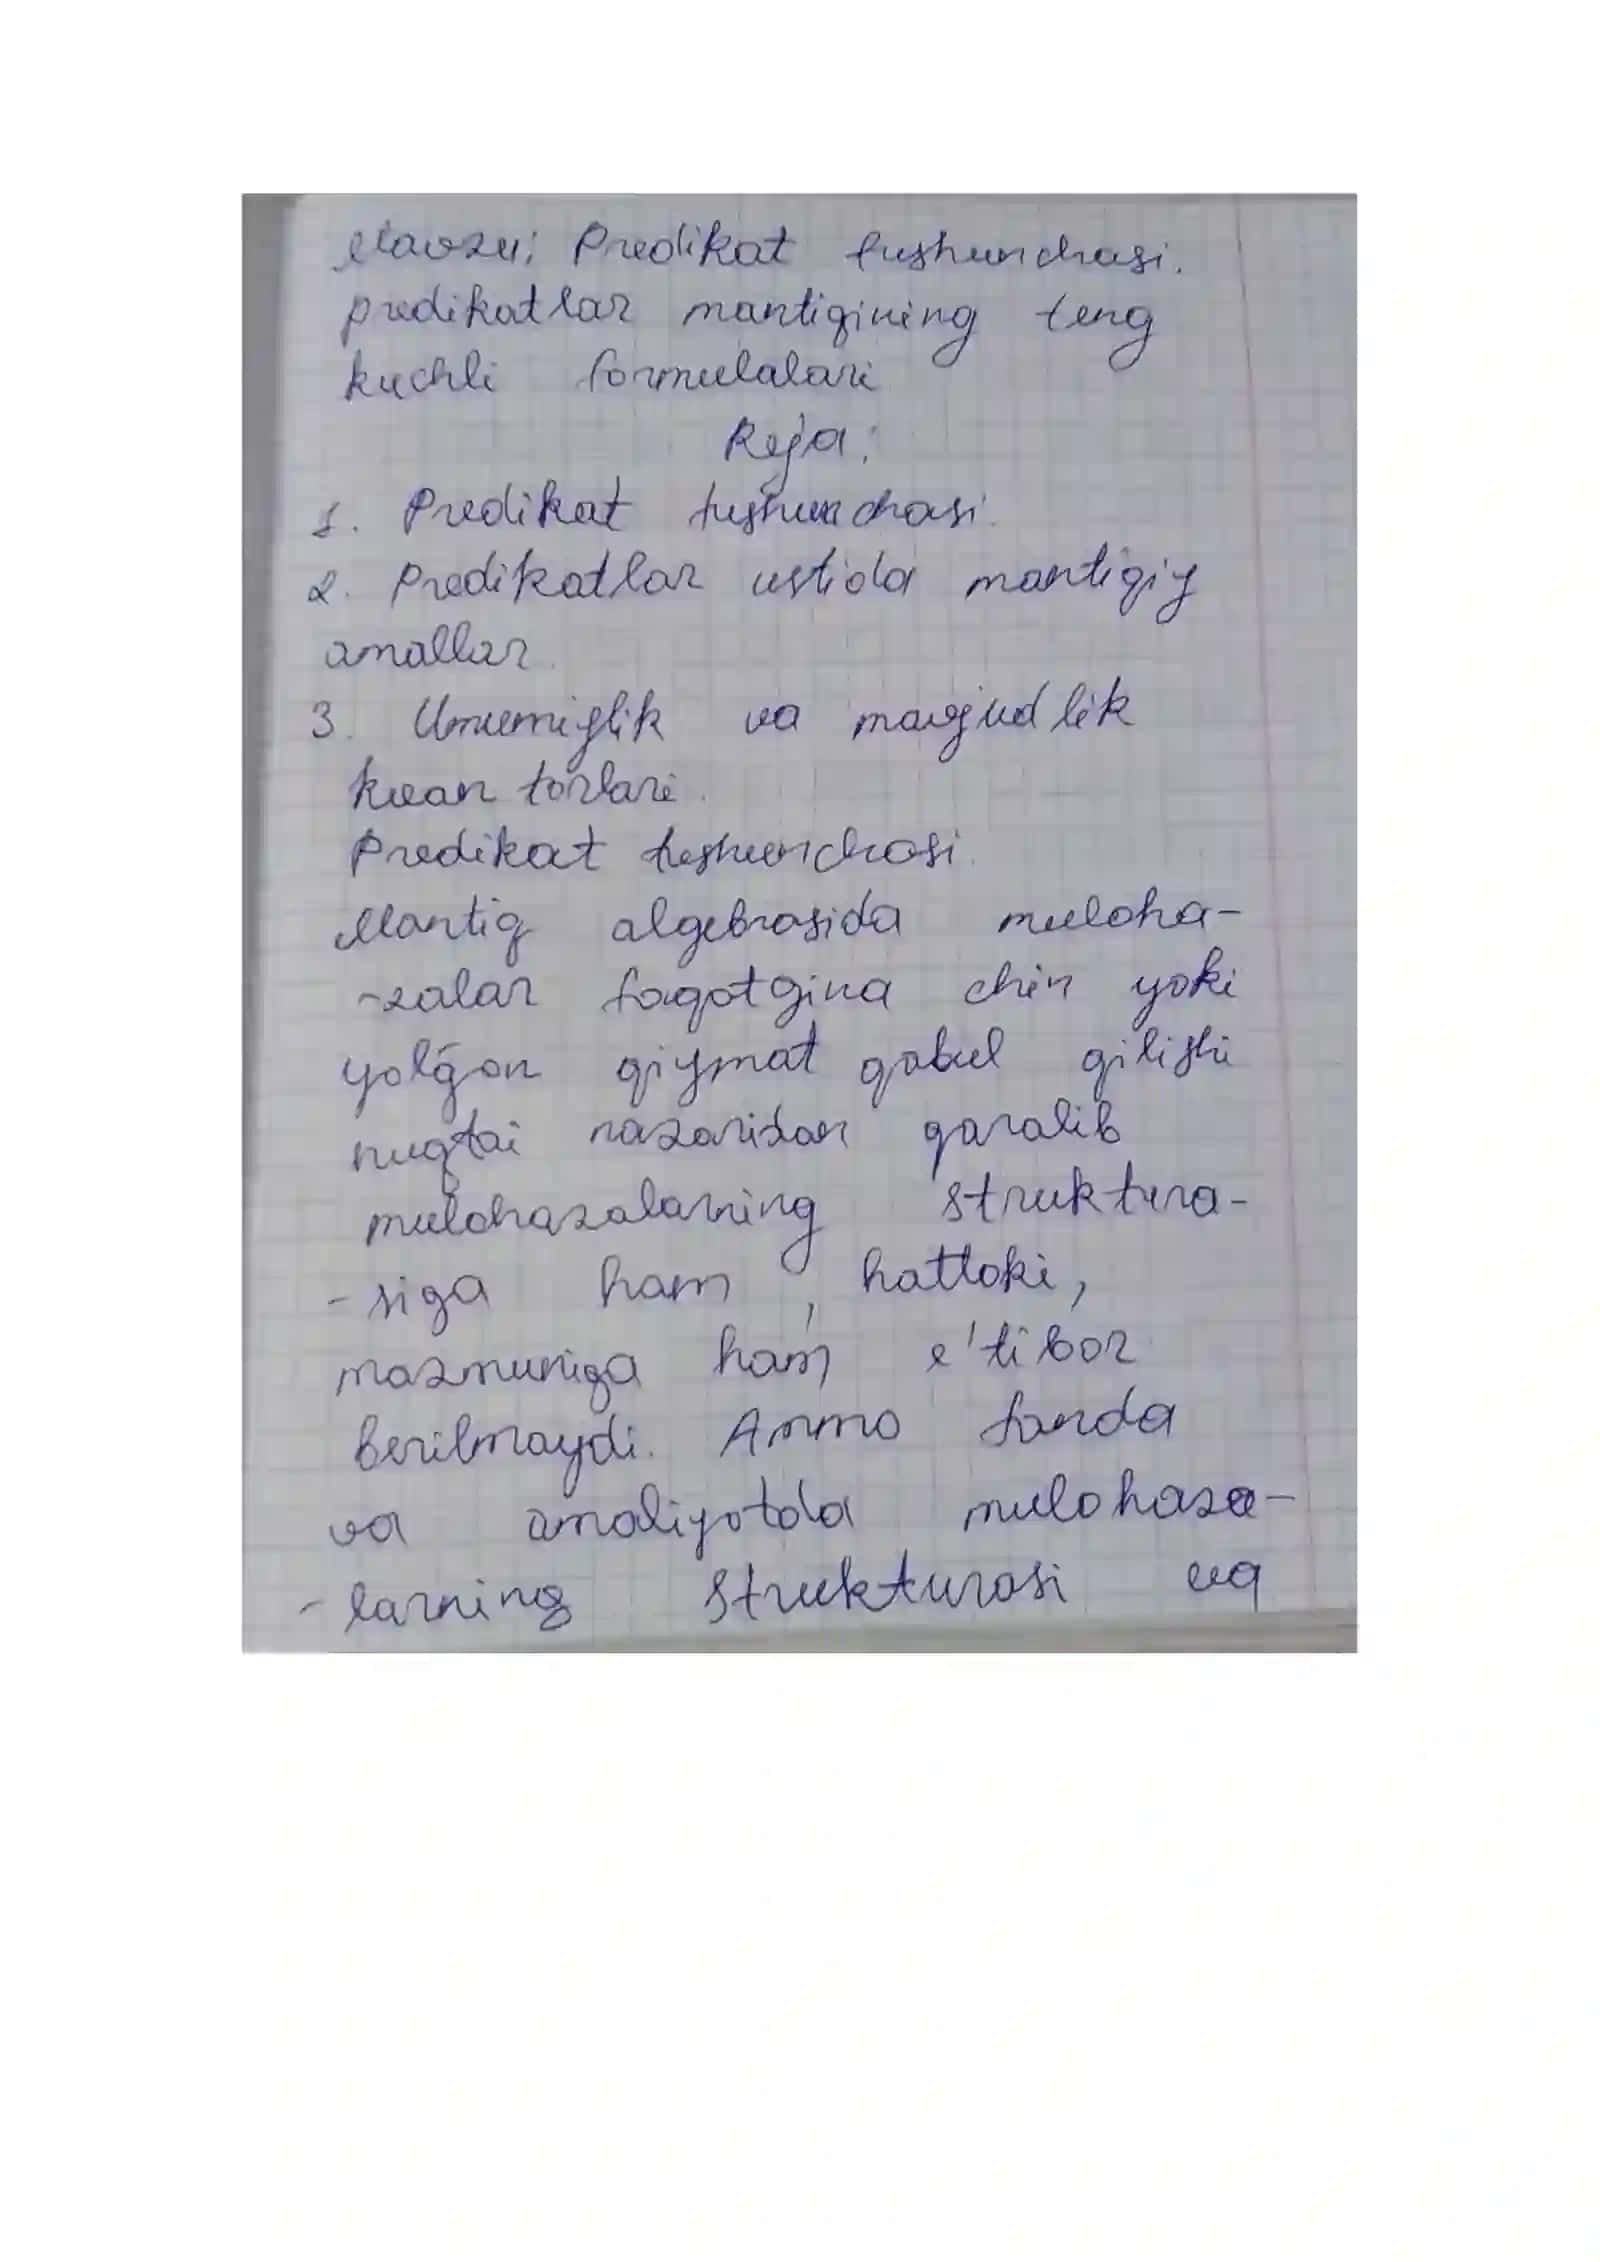 Mavzu: Predikat tushunchasi.
predikatlar mantiqining teng
kuchli formulalari
Reja:
1. Predikat tushunchasi.
2. Predikatlar ustida mantiqiy
amallar.
3. Umumiylik va mavjudlik
kvantorlari.
Predikat tushunchasi.
Mantiq algebrasida muloha-
-zalar faqatgina chin yoki
yolg'on qiymat qabul qilishi
nuqtai nazaridan qaralib
mulohazalarning struktura-
-siga ham, hattoki,
mazmuniga ham e'tibor
berilmaydi. Ammo fanda
va amaliyotda mulohaza-
-larning strukturasi va